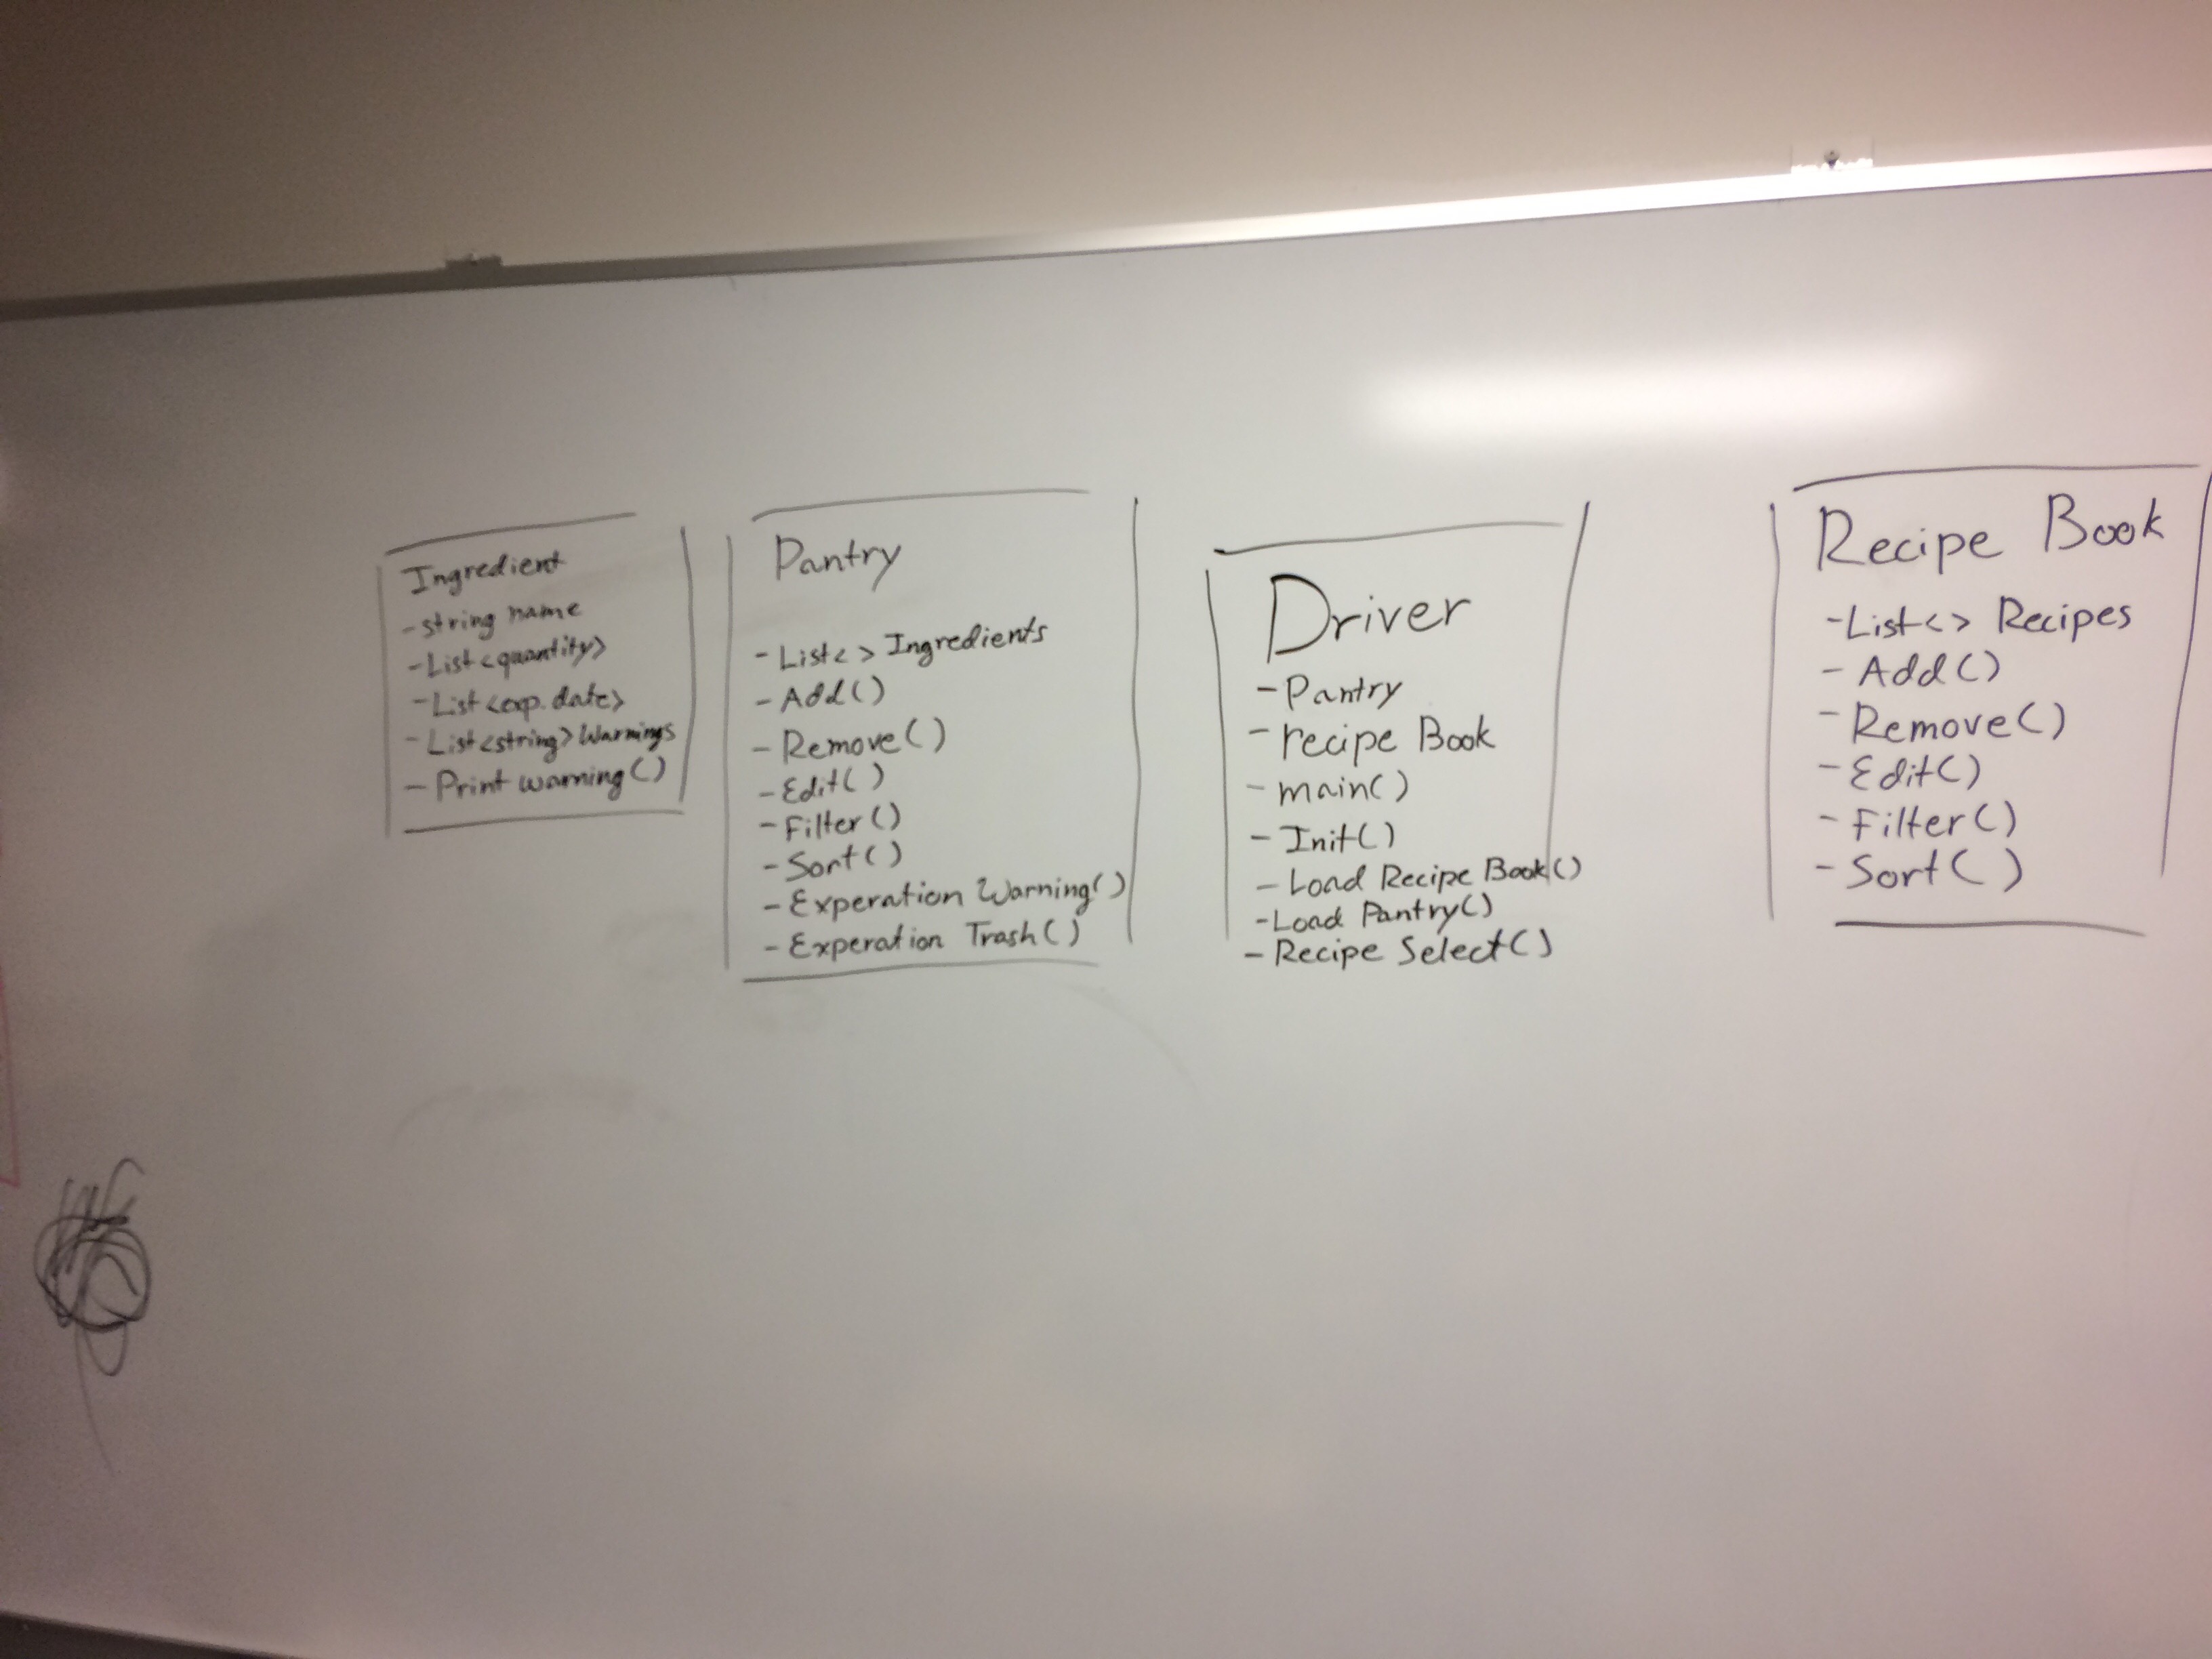 Ingredient
- string name
- List<quantity>
- List<exp. date>
- List<string> Warnings
- Print warning()
Pantry
- List< > Ingredients
- Add()
- Remove()
- Edit()
- Filter()
- Sort()
- Experation Warning()
- Experation Trash()
Driver
- Pantry
- recipe Book
- main()
- Init()
- Load Recipe Book()
- Load Pantry()
- Recipe Select()
Recipe Book
- List<> Recipes
- Add()
- Remove()
- Edit()
- Filter()
- Sort()